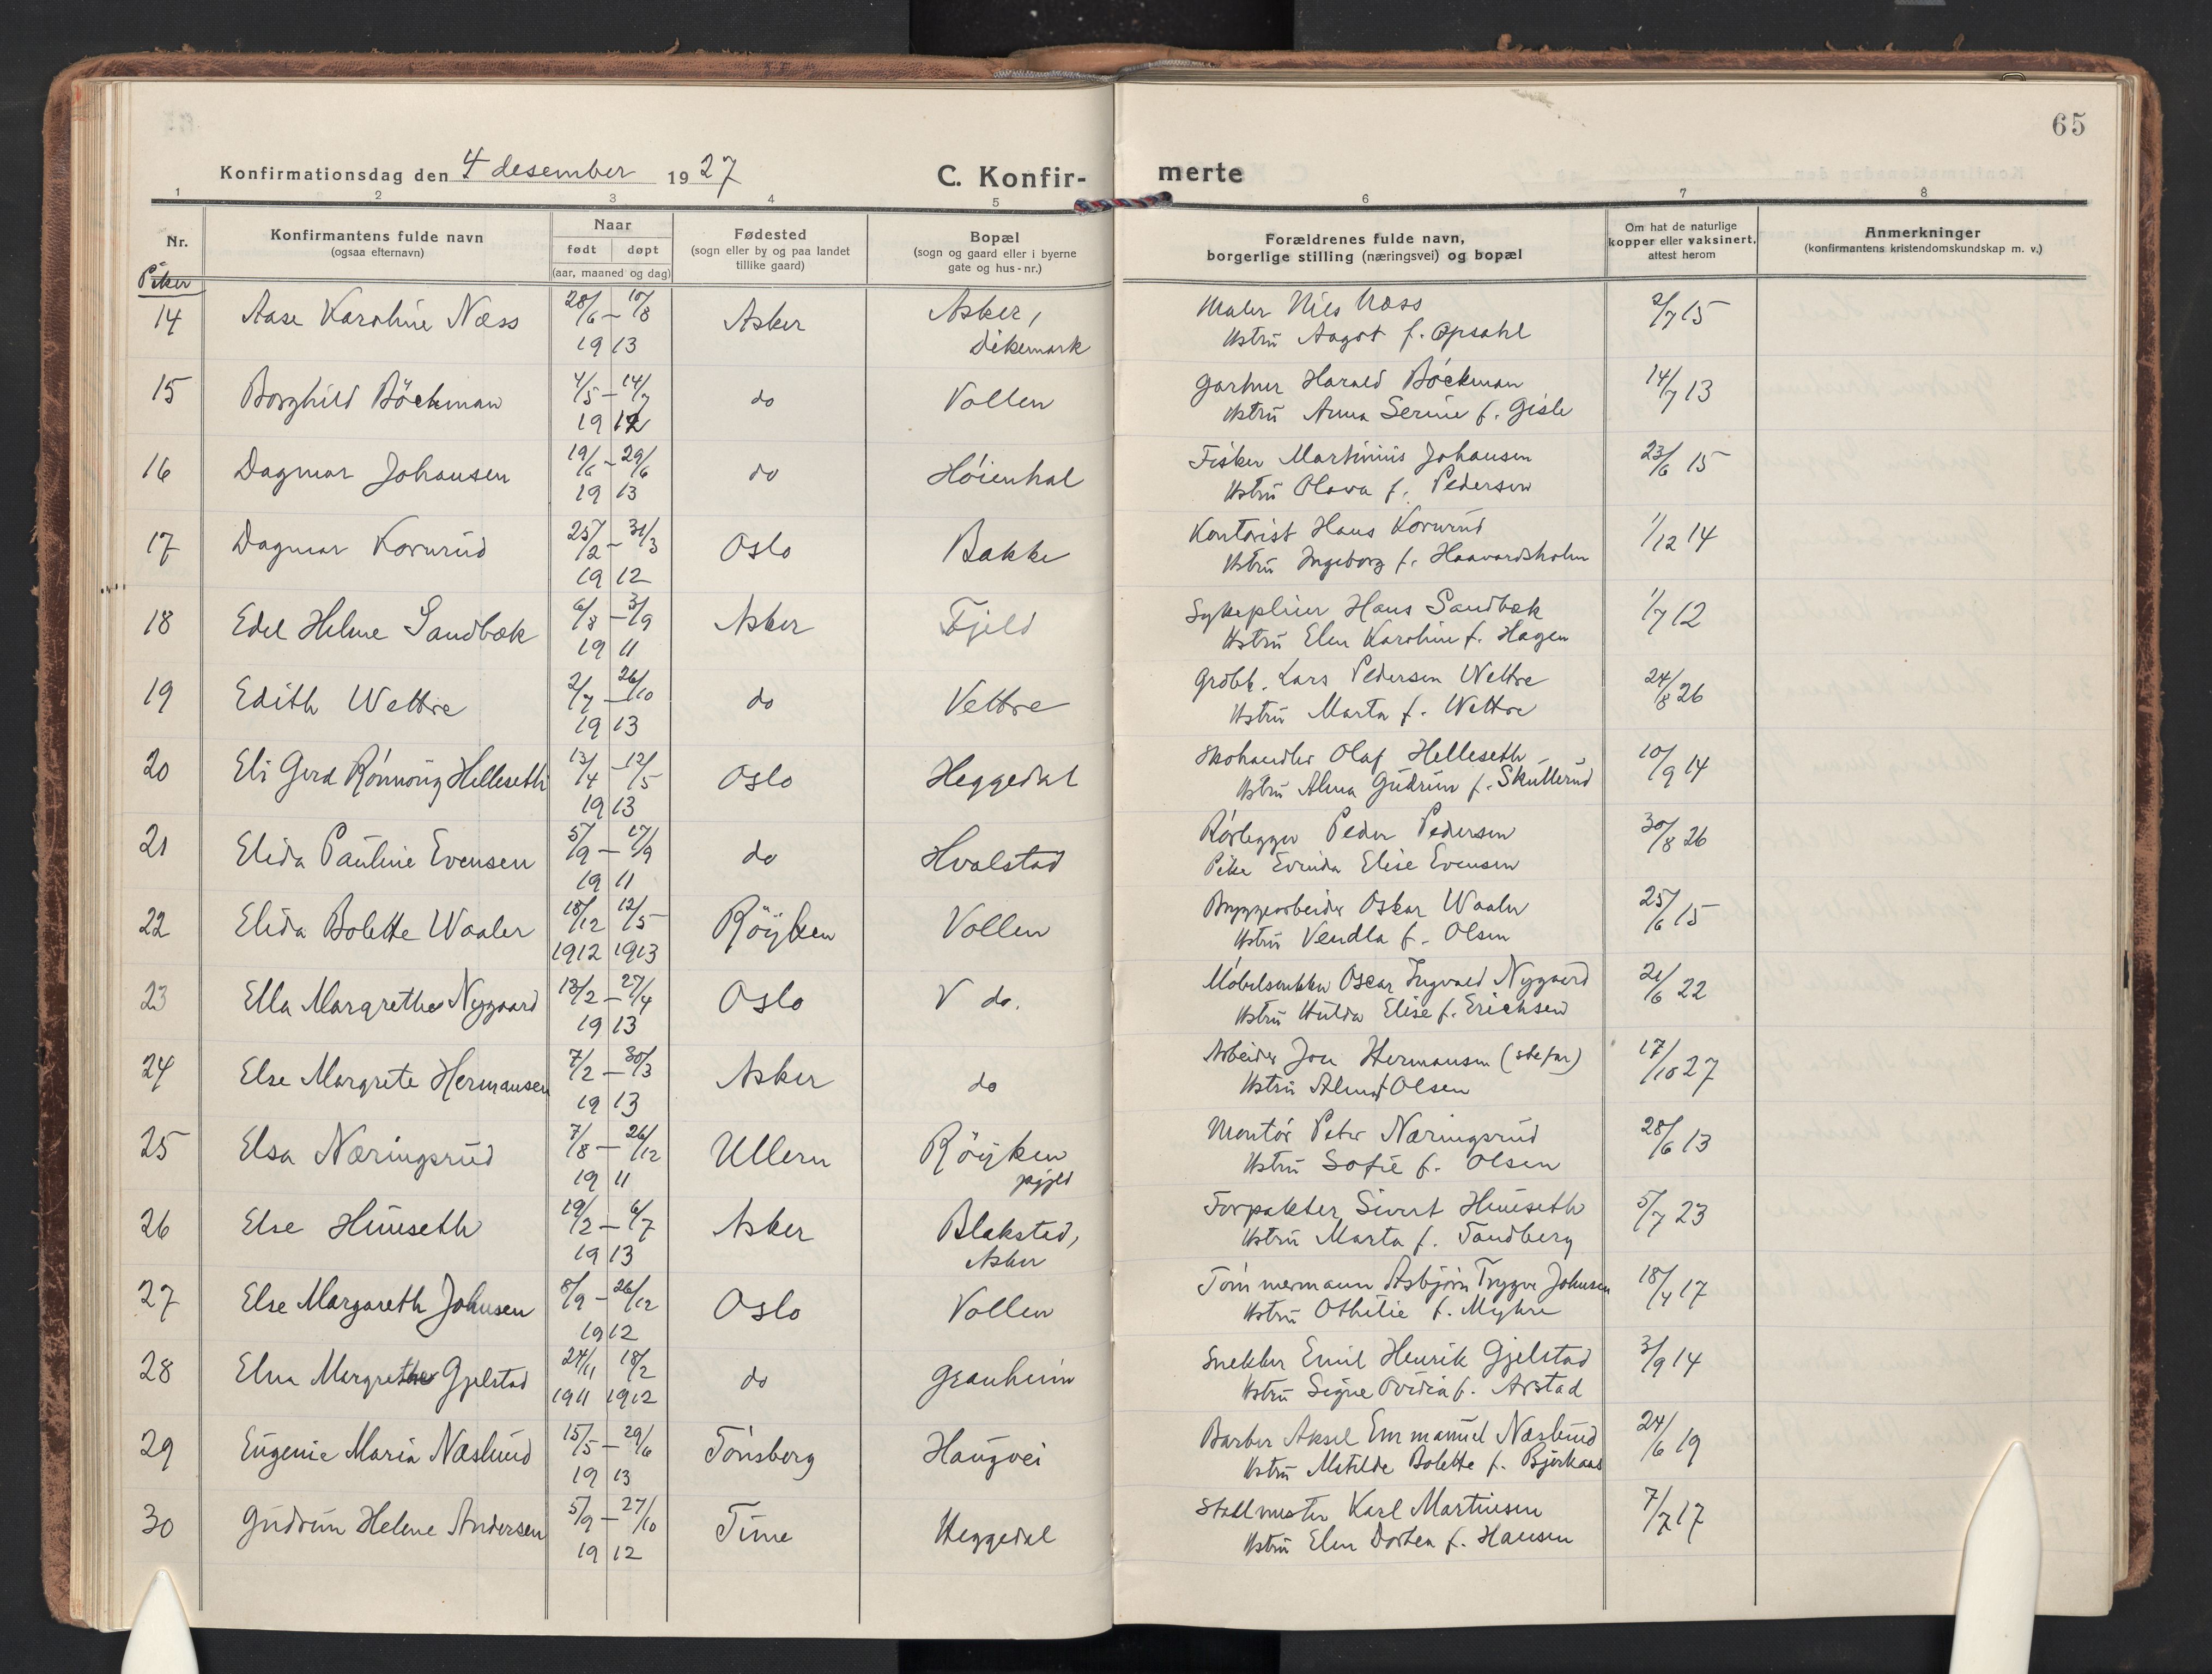 65
Konfirmationsdag den 4 desember 1927
C. Konfirmerte
1 2 3 4 5 6 7 8
Nr.
Konfirmantens fulde navn
(ogsaa efternavn)
Naar
født døpt
(aar, maaned og dag)
Fødested
(sogn eller by og paa landet
tillike gaard)
Bopæl
(sogn og gaard eller i byerne
gate og hus-nr.)
Forældrenes fulde navn,
borgerlige stilling (næringsvei) og bopæl
Om hat de naturlige
kopper eller vaksinert,
attest herom
Anmerkninger
(konfirmantens kristendomskundskap m. v.)
Piker
14 Aase Karoline Næss 28/6 – 10/8 Asker Asker, Maler Nils Næss 2/7 15
1913 Dikemark Hstru Aagot f. Opsahl
15 Borghild Böckman 4/5 – 14/7 do Vollen Gartner Harald Böckman 14/7 13
1912 Hstrü Anna Serine f. Gisle
16 Dagmar Johansen 19/6 – 29/6 do Höienhal Fisker Martinius Johansen 23/6 15
1913 Hstrü Olava f. Pedersen
17 Dagmar Kornrud 25/2 – 31/3 Oslo Bakke Kontorist Hans Kornrud 1/12 14
1912 Hstrü Ingeborg f. Haavardsholm
18 Edel Helene Sandbæk 6/8 – 3/9 Asker Fjeld Sykepleier Hans Sandbæk 1/7 12
1911 Hstrü Elen Karoline f. Hagen
19 Edith Wettre 2/7 – 26/10 do Vettre Grdbk. Lars Pedersen Wettre 24/8 26
1913 Hstrü Marta f. Wettre
20 Eli Gerd Rönnoüg Helleseth 13/4 – 12/5 Oslo Heggedal Skohandler Olaf Helleseth 10/9 14
1913 Hstrü Alma Güdrün f. Skullerüd
21 Elida Pauline Evensen 5/9 – 17/9 do Hvalstad Rörlegger Peder Pedersen 30/8 26
1911 Pike Evinda Elise Evensen
22 Elida Bolette Waaler 18/12 12/5 Röyken Vollen Bryggearbeider Oskar Waaler 25/6 15
1912 1913 Hstrü Vendla f. Olsen
23 Ella Margrethe Nygaard 13/2 – 27/4 Oslo V do. Möbelsnekker Oscar Ingvald Nygaard 21/6 22
1913 Hstrü Hulda Elise f. Erichsen
24 Else Margrete Hermansen 7/2 – 30/3 Asker do Arbeider Jon Hermansen (stefar) 17/10 27
1913 Hstrü Alma f Olsen
25 Elsa Næringsrüd 7/8 – 26/12 Ullern Röyken Montör Peter Næringsrüd 28/6 13
1911 pgjeld Hstrü Sofie f. Olsen
26 Else Hünseth 19/2 – 6/7 Asker Blakstad, Forpakter Sivert Hünseth 5/7 23
1913 Asker Hstrü Marta f. Tandberg
27 Else Margareth Johnsen 8/9 – 26/12 Oslo Vollen Tömmermann Asbjörn Trygve Johnsen 18/4 17
1912 Hstrü Othilie f. Myhre
28 Elna Margrethe Gjelstad 27/11 18/2 do Granheim Snekker Emil Henrik Gjelstad 3/9 14
1911 1912 Hstrü Signe Ovidia f. Arstad
29 Eügenie Maria Næslünd 15/5 – 29/6 Tönsberg Haugvei Barber Aksel Emmanuel Næslünd 24/6 19
1913 Hstrü Matilde Bolette f. Bjerkaas
30 Güdrün Helene Andersen 5/9 – 27/10 Time Heggedal Stallmester Karl Martinsen 7/7 17
1912 Hstrü Elen Dortea f. Hansen